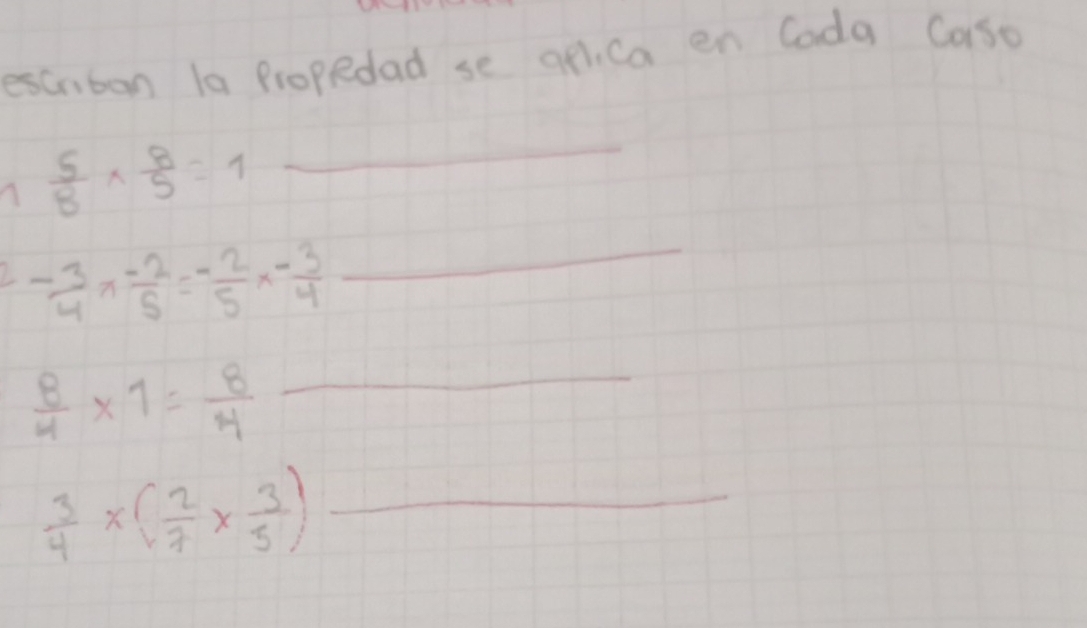 escriban la Propiedad se aplica en Cada Caso
1 5/8 × 8/5 = 1
2 -3/4 × -2/5 = -2/5 × -3/4
8/4 × 1 = 8/4
3/4 × (2/7 × 3/5)